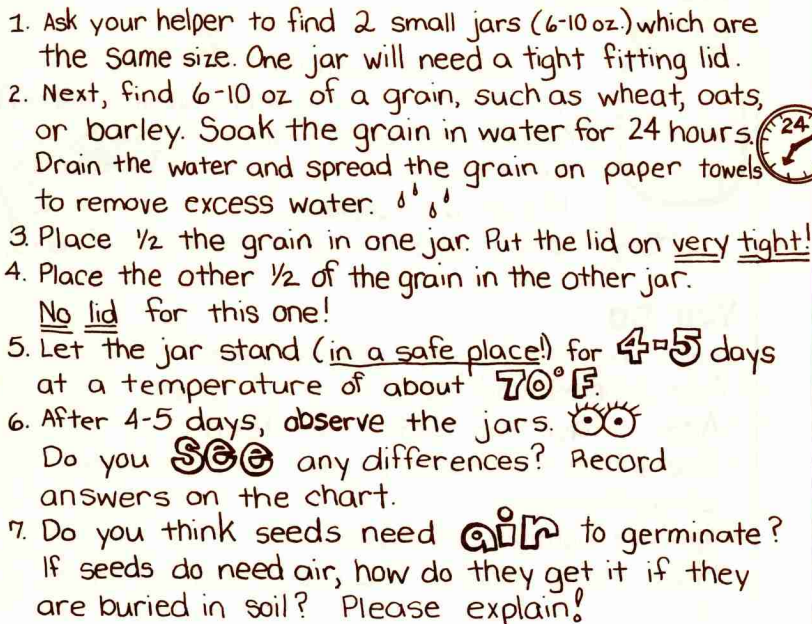 1. Ask your helper to find 2 small jars (6-10 oz.) which are
the same size. One jar will need a tight fitting lid.
2. Next, find 6-10 oz of a grain, such as wheat, oats,
or barley. Soak the grain in water for 24 hours.
24
Drain the water and spread the grain on paper towels
to remove excess water.
3. Place 1/2 the grain in one jar. Put the lid on very tight!
4. Place the other 1/2 of the grain in the other jar.
No lid for this one!
5. Let the jar stand (in a safe place!) for 4-5 days
at a temperature of about 70° F.
6. After 4-5 days, observe the jars.
Do you See any differences? Record
answers on the chart.
7. Do you think seeds need air to germinate?
If seeds do need air, how do they get it if they
are buried in soil? Please explain!